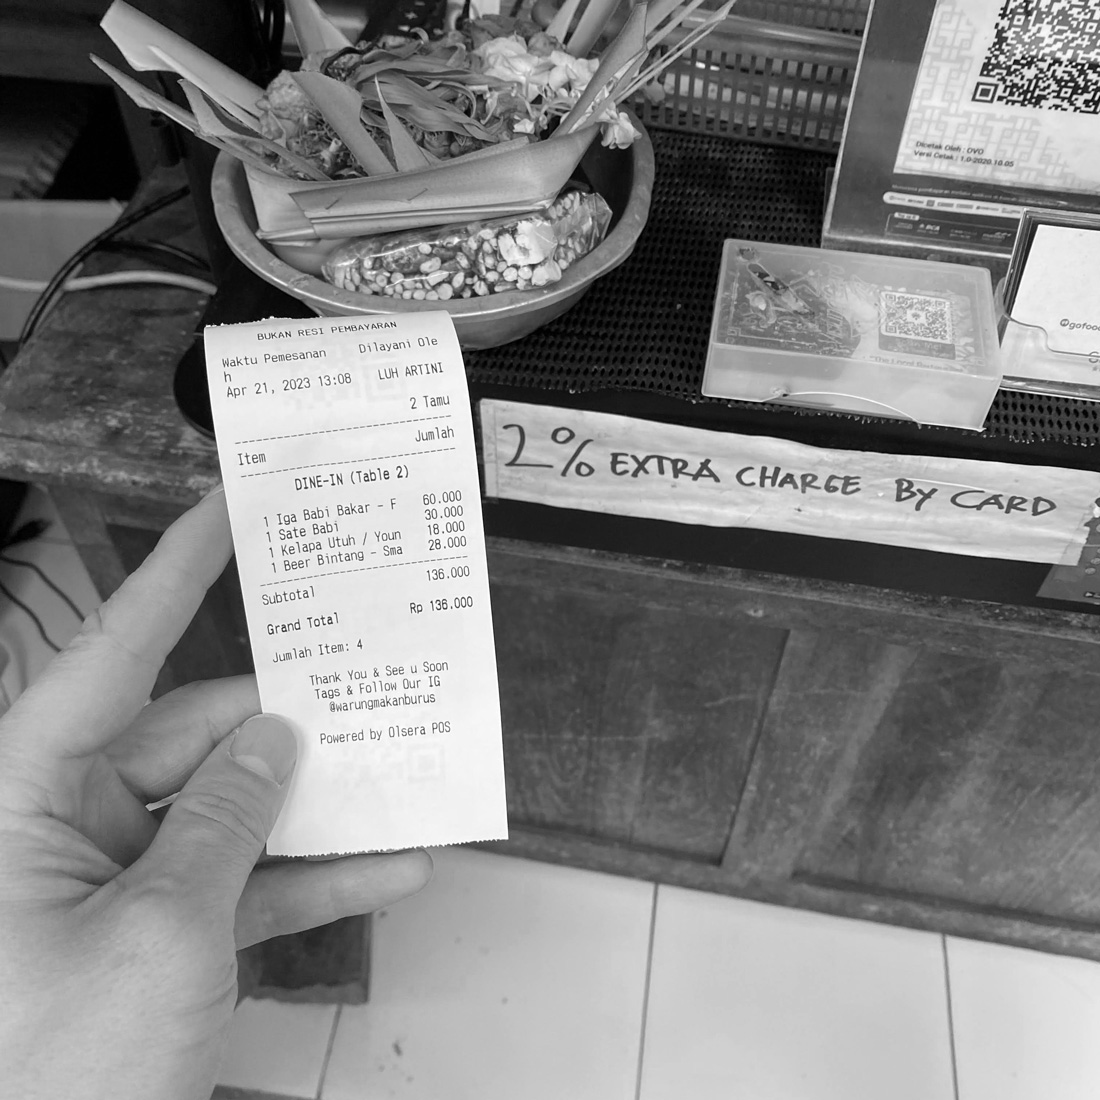 BUKAN RESI PEMBAYARAN
Waktu Pemesanan Dilayani Ole
h
Apr 21, 2023 13:08 LUH ARTINI
2 Tamu
Jumlah
Item
DINE-IN (Table 2)
1 Iga Babi Bakar - F 60.000
1 Sate Babi 30.000
1 Kelapa Utuh / Youn 18.000
1 Beer Bintang - Sma 28.000
Subtotal 136.000
Grand Total Rp 136.000
Jumlah Item: 4
Thank You & See u Soon
Tags & Follow Our IG
@warungmakanburus
Powered by Olsera POS
2% EXTRA CHARGE BY CARD
Dicetak Oleh : OVO
Versi Cetak : 1.0-2020.10.05
BCA
gofood